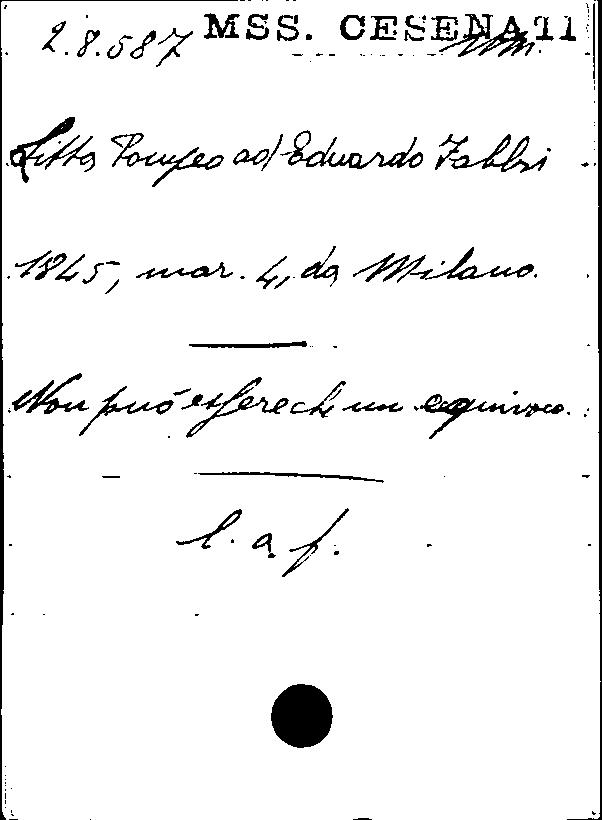 2.8.587 MSS. CESENATI
Litta Pompeo ad Eduardo Fabbri
1845, mar. 4, da Milano.
Non può essere che un equivoco.
l. a. f.